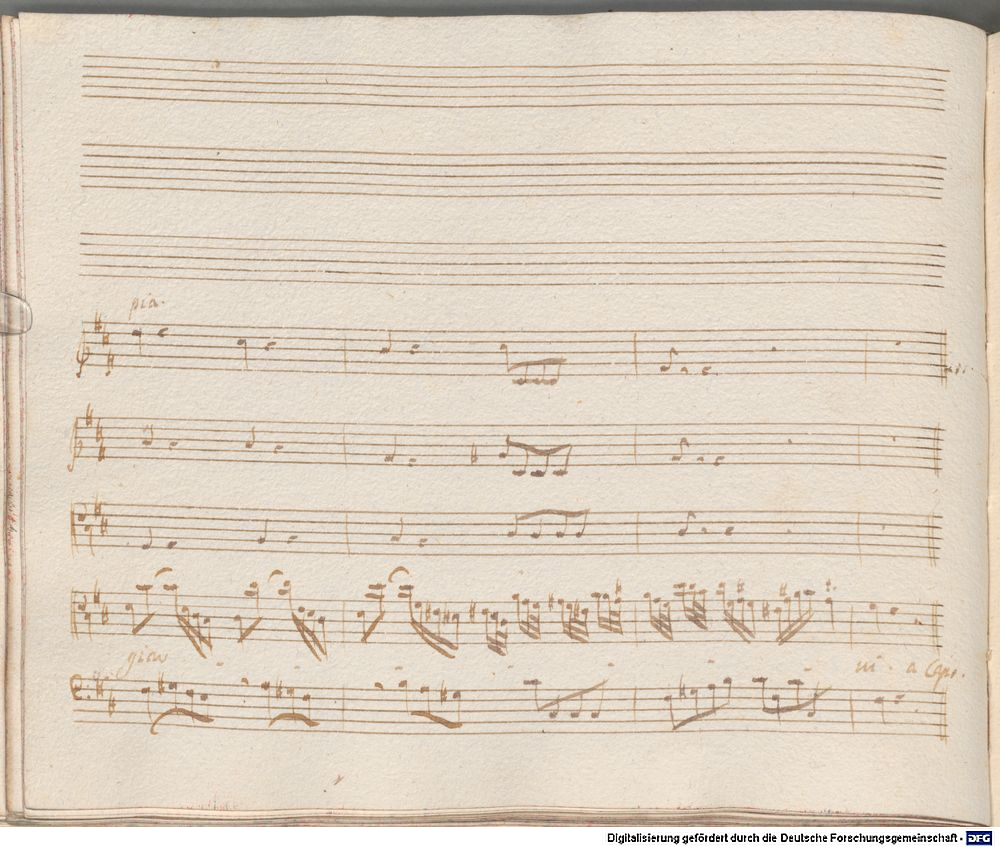 pia.
giav - - - - - - - ni. a Capo.
Digitalisierung gefördert durch die Deutsche Forschungsgemeinschaft - DFG